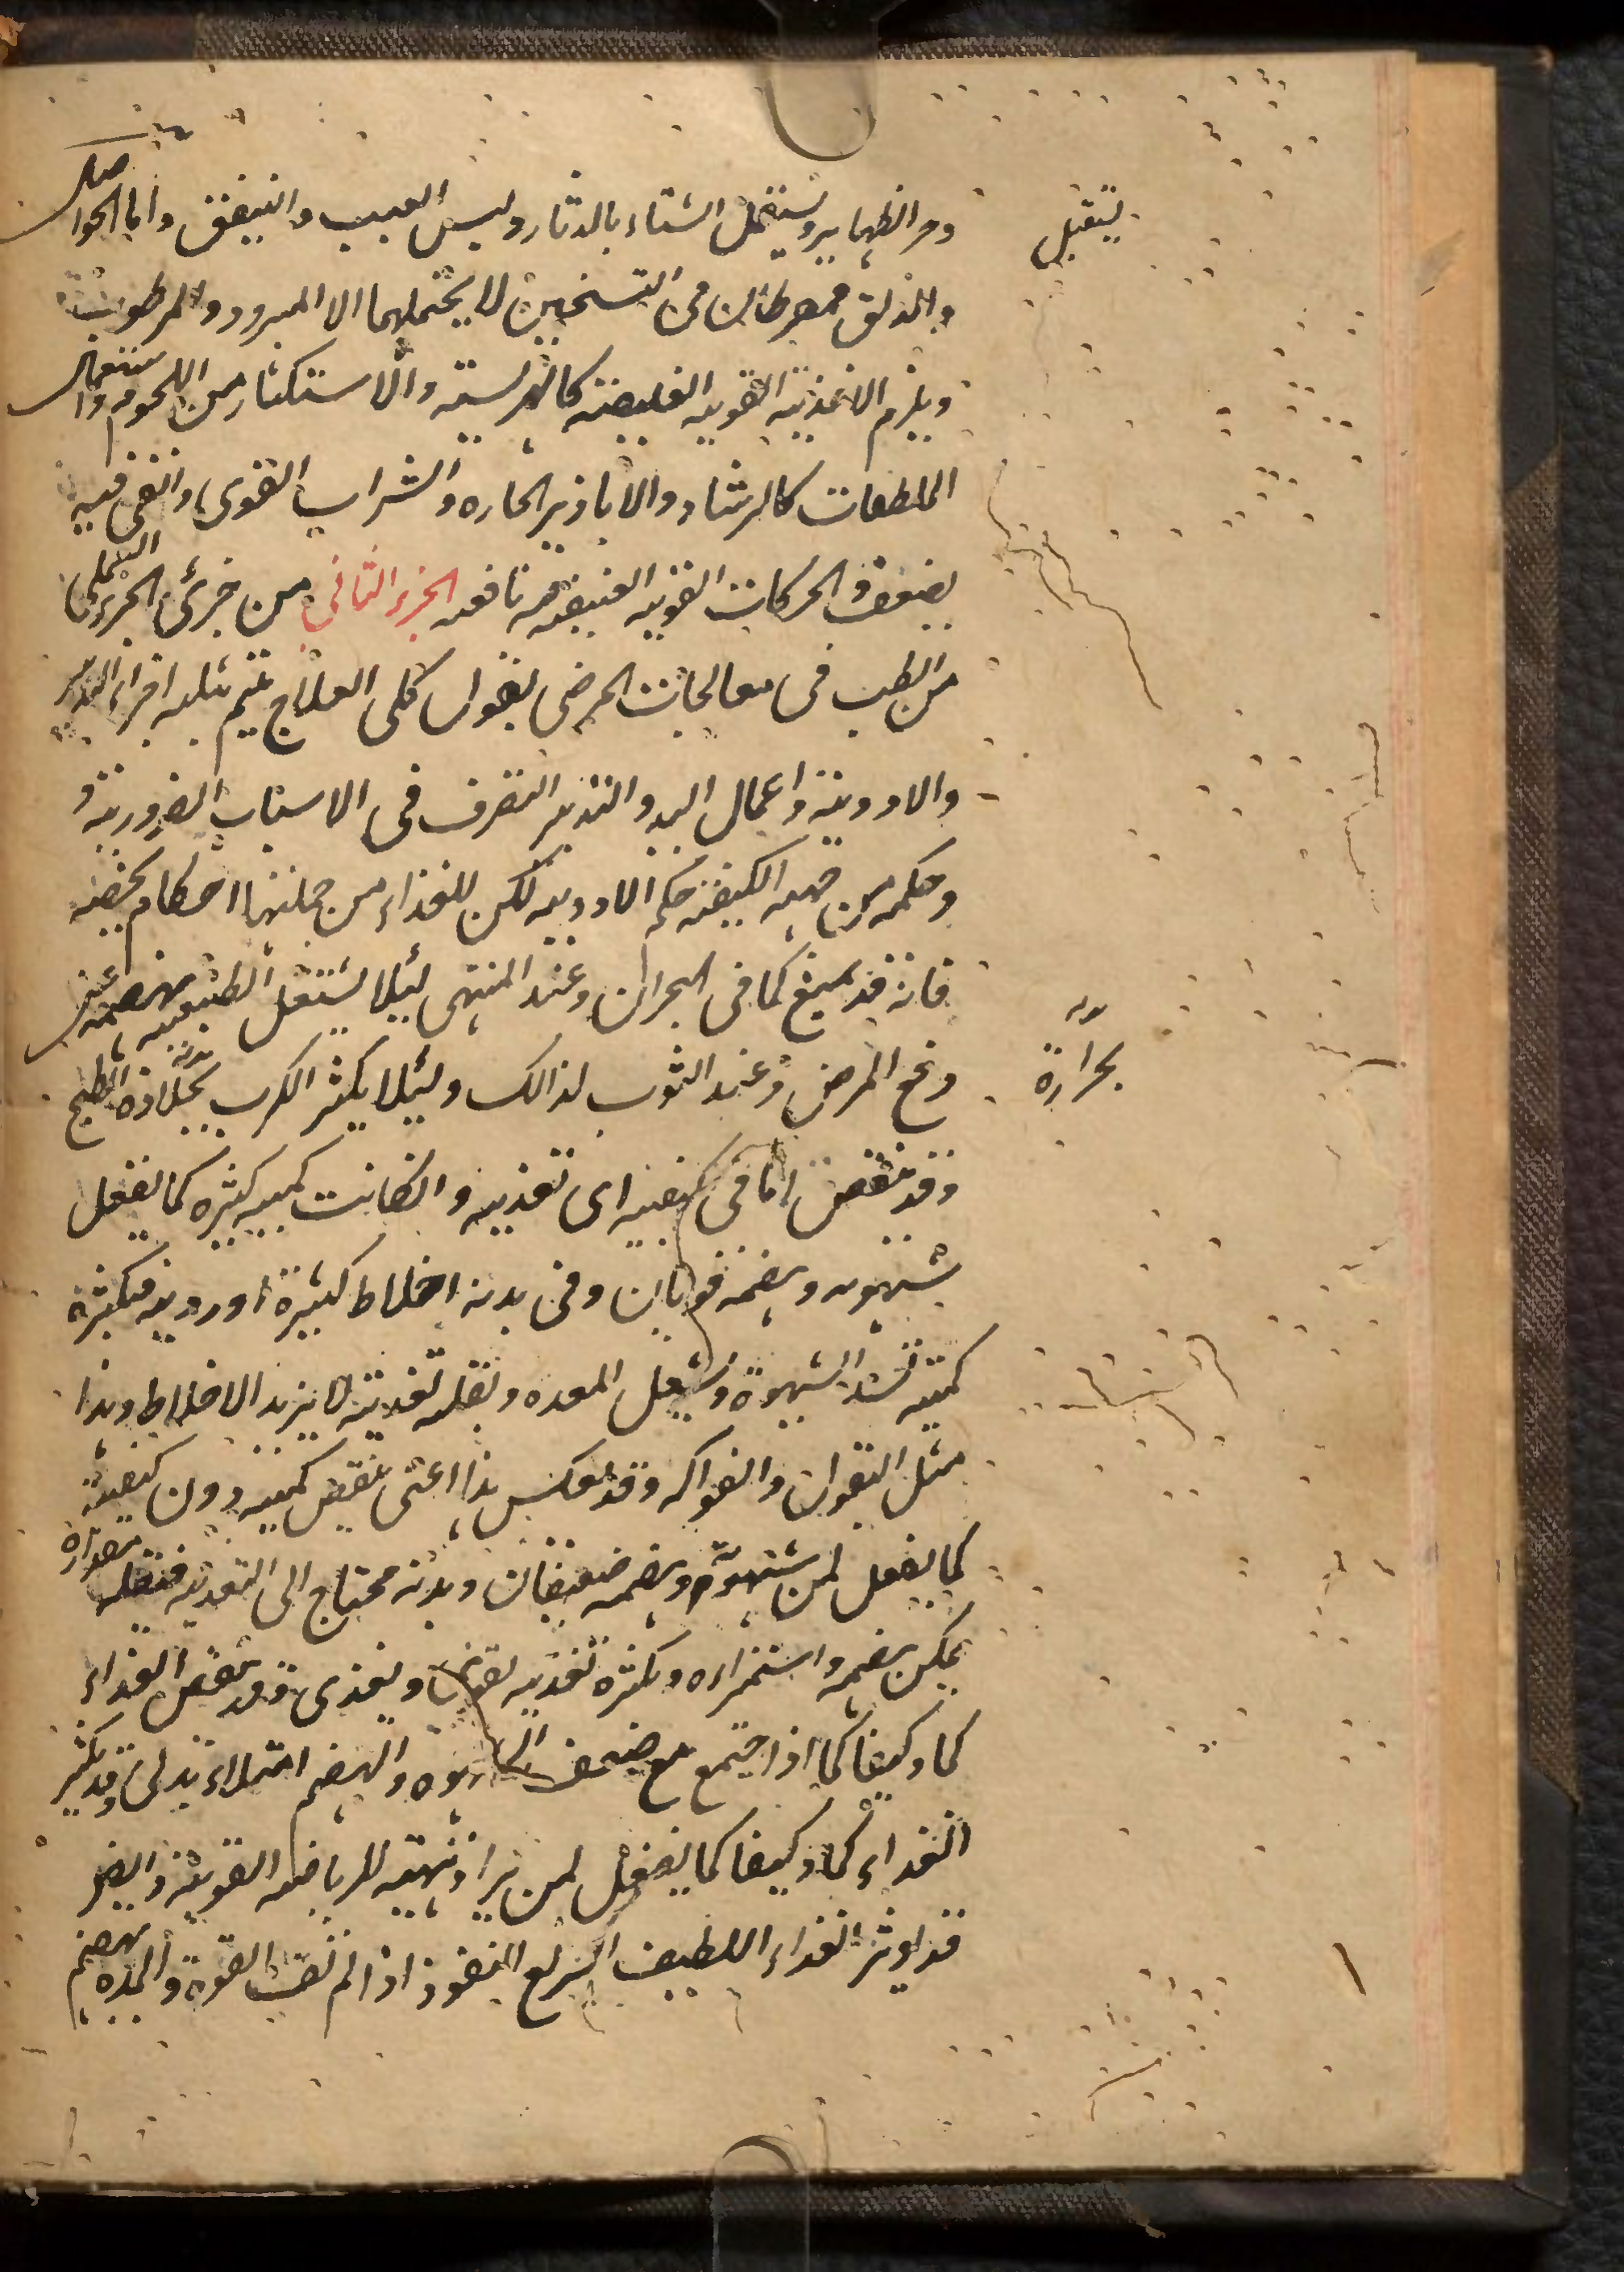 وحر الظهاير ويستقبل الشتاء بالدثار ولبس العبب والنيفق واما الحواصل
يستقبل
والدلق فمفرطان فى التسخين لا يحتملهما الا المبرود والمرطوب
ويلزم الاغذية القويه الغليظة كالهريسة والاستكثار من اللحوم واستعمال
الملطفات كالرشاد والابازير الحاره والشراب القوى والقى فيه
يضعف والحركات القويه العنيفة فيه نافعه الجزء الثانى من جزئى الجزء العملى
من الطب فى معالجات المرضى بقول كلى العلاج يتم بثلثه اجزاء التدبير
والادوية واعمال اليد والتدبير التصرف فى الاسباب الضرورية و
وحكمه من جهة الكيفية حكم الادويه لكن للغذاء من جملتها احكام تخصه
فانه قد يمنع كما فى البحران وعند المنتهى ليلا يشتغل الطبيعه بهضمه عن
دفع المرض وعند النوب لذالك وليلا يكثر الكرب بحرارة الطبخ
بحرارة
وقد ينقص اما فى كيفيته اى تغذيته وانكانت كميته كثيره كما يفعل
شهوته وهضمه قويان وفى بدنه اخلاط كثيرة او رديه فبكثرة
كميته تسد الشهوة وتشغل المعده وبقله تغذيته لا يزيد الاخلاط وهذا
مثل البقول والفواكه وقد يعكس هذا اعنى ينقص كميته دون كيفيته
كما يفعل لمن شهوته وهضمه ضعيفان وبدنه محتاج الى التغذيه فبقلة مقداره
يمكن هضمه واستمراءه وبكثرة تغذيته يقوى ويغذى وقد ينقص الغذاء
كما وكيفا كما اذا اجتمع مع ضعف الشهوه والهضم امتلاء بدنى وقد يكثر
الغذاء كما وكيفا كما يفعل لمن يراد تهيئه للرياضه القويه وايضا
قد يوثر الغذاء اللطيف السريع النفوذ اذا لم تف القوة والمده بهضم